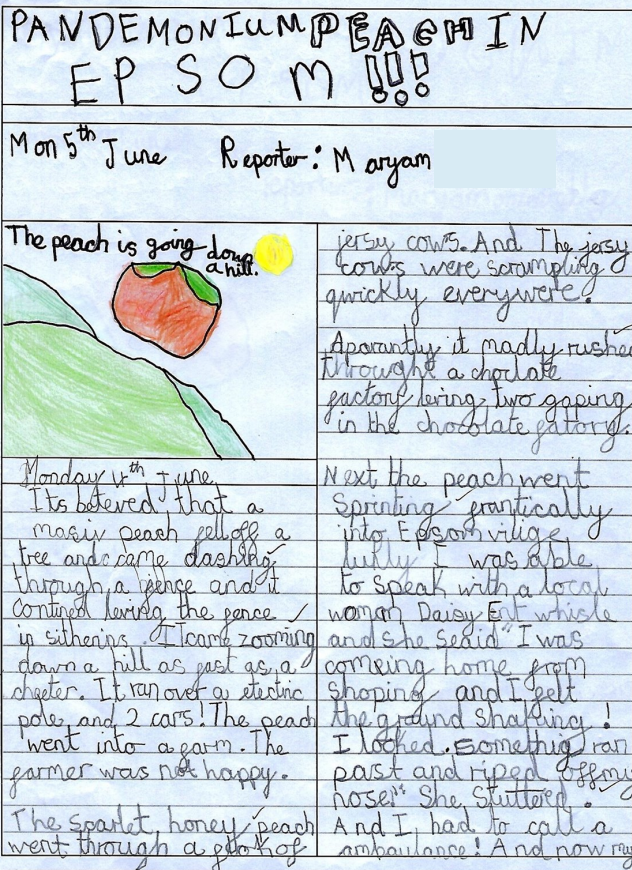 PANDEMONIUM PEACH IN
EPSOM !!!
Mon 5th June Reporter: Maryam
The peach is going down
a hill.
Monday 4th June
Its beleved that a
masiv peach fell off a
tree and came dashing
through a fence and it
contined leving the fence
in sitherins. It came zooming
down a hill as fast as a
cheeter. It ran over a etectric
pole and 2 cars! The peach
went into a farm. The
farmer was not happy.
The sparlet honey peach
went through a of
jersy cows. And The jersy
cows were scrumpling
qwickly everywere.
Aparantly it madly rushed
throught a choclate
factory leving two gaping
in the chocolate fatory.
Next the peach went
Sprinting frantically
into Epsom vilige
lukly I was able
to speak with a local
woman Daisy Ent whisle
and she seaid "I was
comeing home from
shoping and I felt
the ground shaking!
I looked. Somethig ran
past and riped off my
nose!" She Stuttered.
And I had to call a
ambaulance! And now my